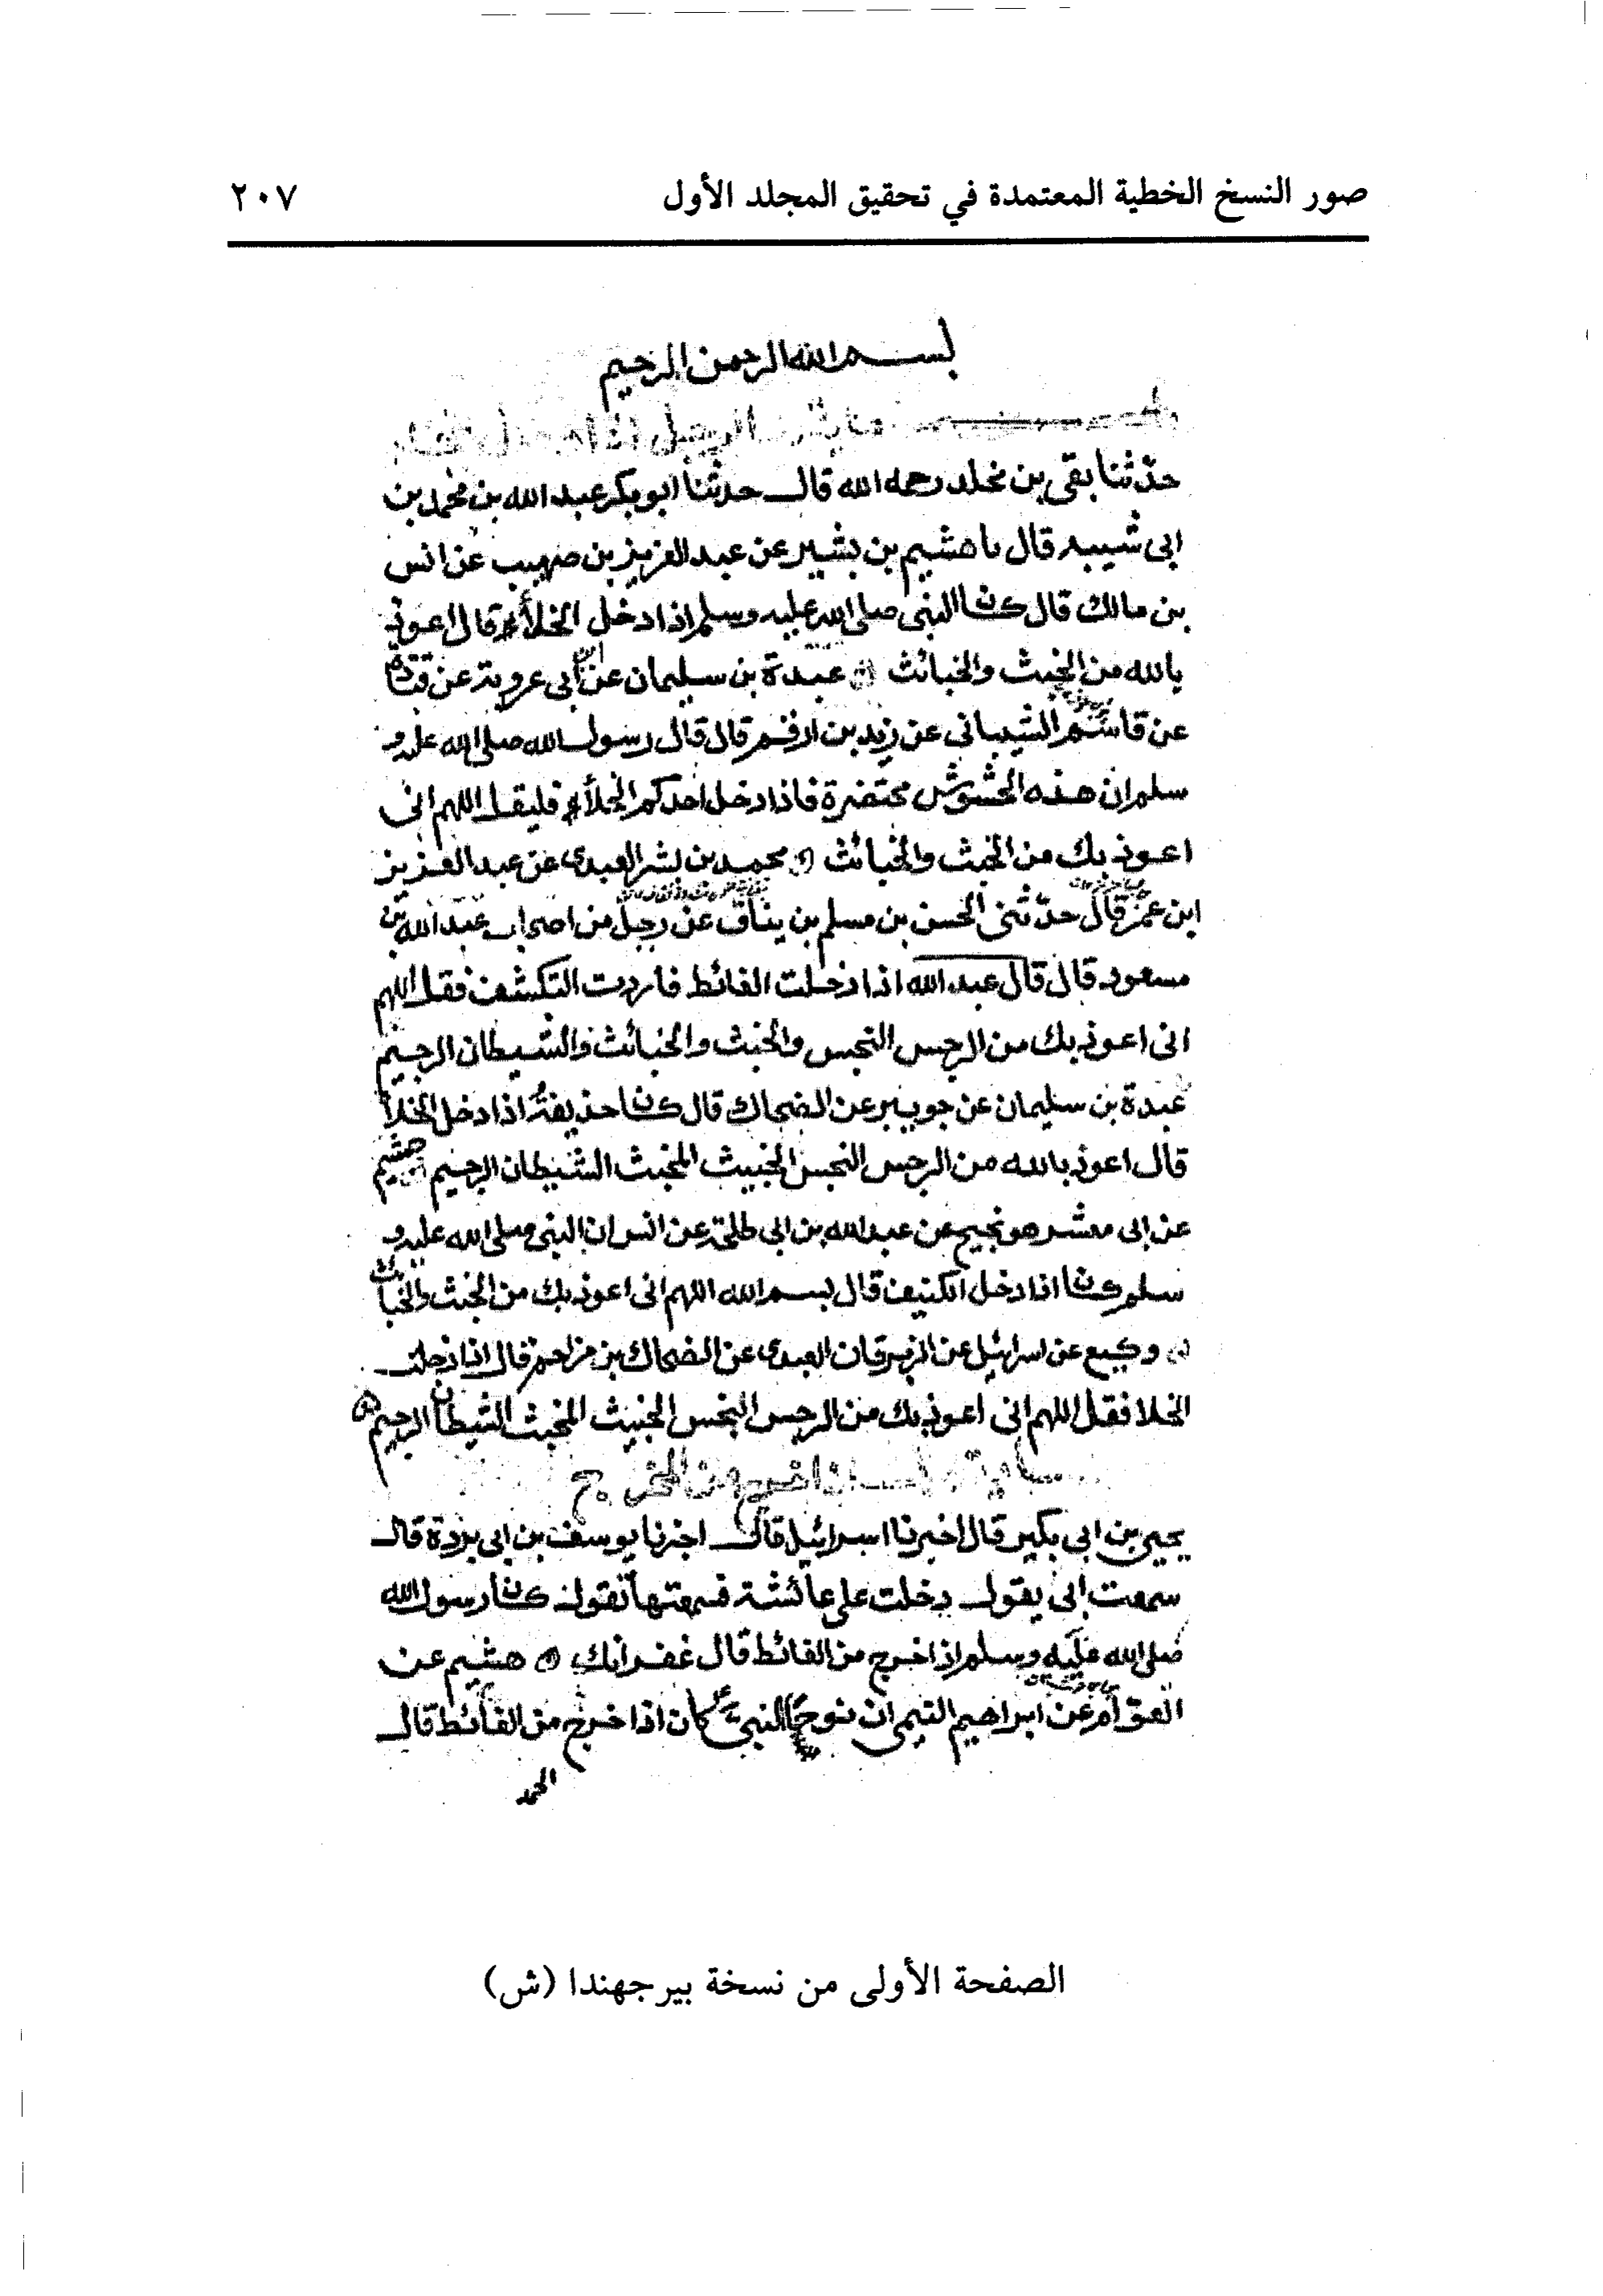 صور النسخ الخطية المعتمدة في تحقيق المجلد الأول ٢٠٧
بسم الله الرحمن الرحيم
حدثنا بقي بن مخلد رحمه الله قال حدثنا ابو بكر عبد الله بن محمد بن
ابي شيبه قال نا هشيم بن بشير عن عبد العزيز بن صهيب عن انس
بن مالك قال كان النبي صلى الله عليه وسلم اذا دخل الخلأ قال اعوذ
بالله من الخبث والخبائث عبدة بن سليمان عن ابي عروبة عن قتادة
عن قاسم الشيباني عن زيد بن ارقم قال قال رسول الله صلى الله عليه و
سلم ان هذه الحشوش محتضرة فاذا دخل احدكم الخلأ فليقل اللهم انى
اعوذ بك من الخبث والخبائث محمد بن بشر العبدى عن عبد العزيز
ابن عمر قال حدثني الحسن بن مسلم بن يناق عن رجل من اصحاب عبد الله بن
مسعود قال قال عبد الله اذا دخلت الغائط فاردت التكشف فقل اللهم
انى اعوذ بك من الرجس النجس والخبث والخبائث والشيطان الرجيم
عبدة بن سليمان عن جويبر عن الضحاك قال كان حذيفة اذا دخل الخلأ
قال اعوذ بالله من الرجس النجس الخبيث المخبث الشيطان الرجيم هشيم
عن ابى معشر هو نجيح عن عبد الله بن ابي طلحة عن انس ان النبي صلى الله عليه و
سلم كان اذا دخل الكنيف قال بسم الله اللهم انى اعوذ بك من الخبث والخبائث
وكيع عن اسرائيل عن الزبرقان العبدى عن الضحاك بن مزاحم قال اذا دخلت
الخلا فقل اللهم انى اعوذ بك من الرجس النجس الخبيث المخبث الشيطان الرجيم
اذا خرج من المخرج
يحيى بن ابي بكير قال اخبرنا اسرائيل قال اخبرنا يوسف بن ابي بردة قال
سمعت ابى يقول دخلت على عائشة فسمعتها تقول كان رسول الله
صلى الله عليه وسلم اذا خرج من الغائط قال غفرانك هشيم عن
العوام عن ابراهيم التيمي ان نوحا النبي كان اذا خرج من الغائط قال
الحمد
الصفحة الأولى من نسخة بيرجهندا (ش)